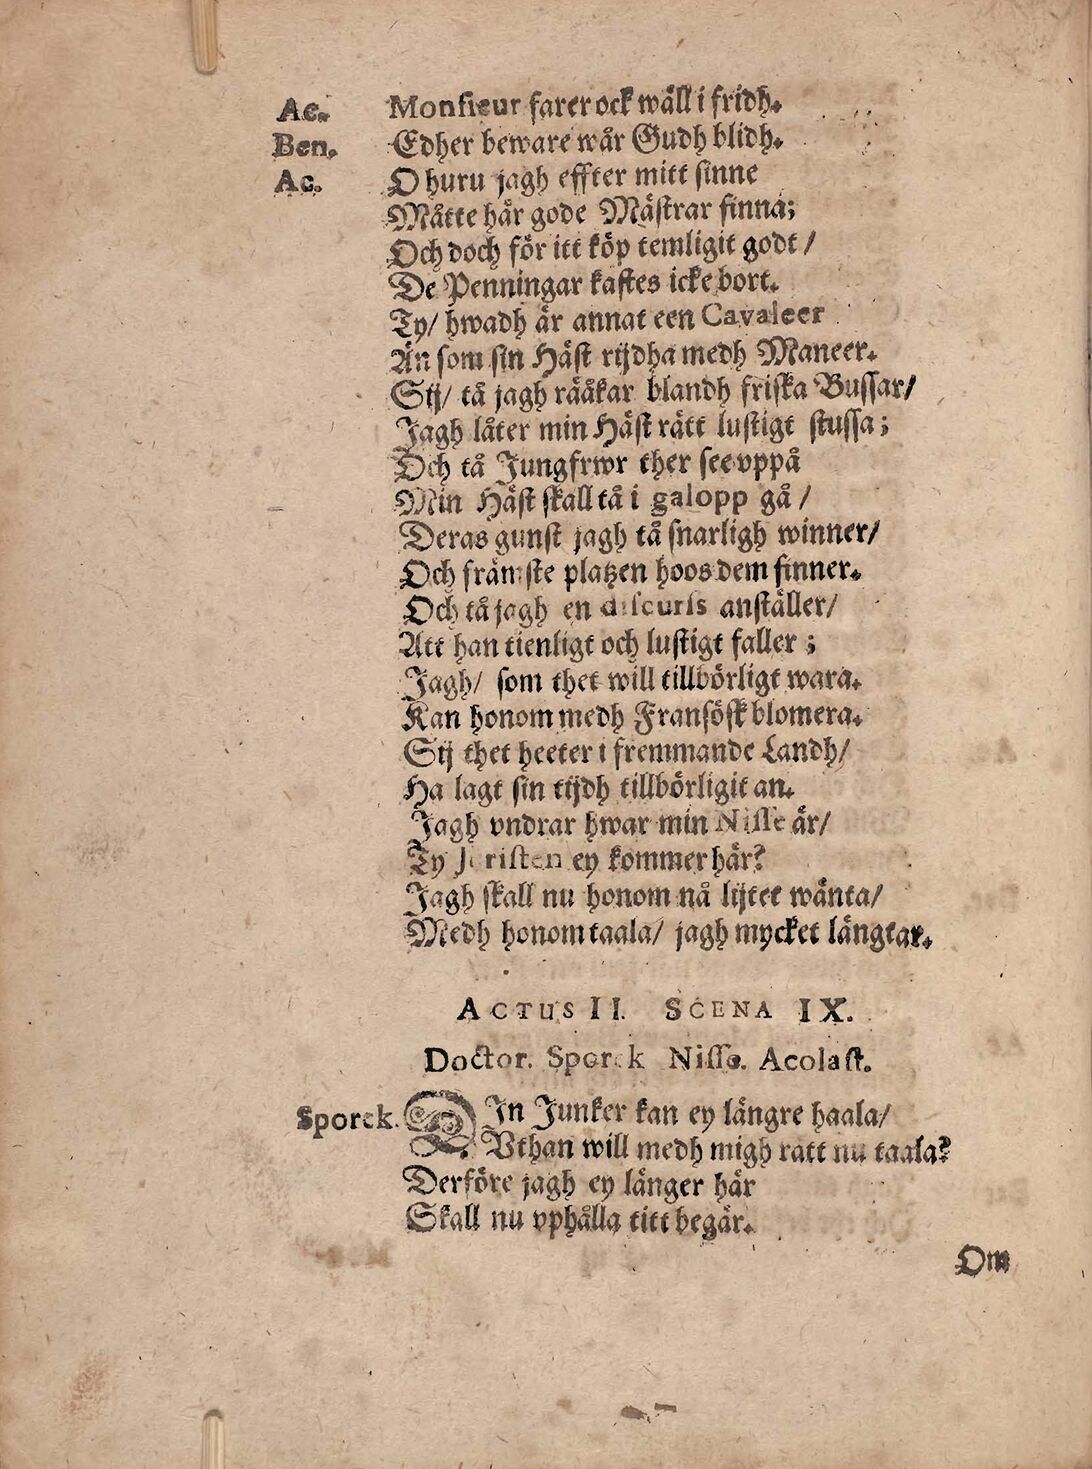 Ac. Monsieur farer ock wäll i fridh.
Ben. Edher beware wår Gudh blidh.
Ac. O huru jagh effter mitt sinne
Måtte här gode Mästrar finna;
Och doch för itt köp temligit godt /
De Penningar kastes icke bort.
Ty/ hwadh är annat een Cavaleer
Än som sin Häst rijdha medh Maneer.
Sij/ tå jagh rååkar blandh friska Bussar/
Jagh låter min Häst rätt lustigt stussa;
Och tå Jungfrwr ther see vppå
Min Häst skall tå i galopp gå /
Deras gunst jagh tå snarligh winner/
Och främste platzen hoos dem finner.
Och tå jagh en discurs anställer/
Att han tienligt och lustigt faller;
Jagh/ som thet will tillbörligt wara.
Kan honom medh Fransösk blomera.
Sij thet heeter i fremmande Landh/
Ha lagt sin tijdh tillbörligit an.
Jagh vndrar hwar min Nisse är/
Ty Juristen ey kommer här?
Jagh skall nu honom nå lijtet wänta/
Medh honom taala/ jagh mycket längtar.
ACTUS II. SCENA IX.
Doctor. Sporck Nisse. Acolast.
Sporck. DIn Junker kan ey längre haala/
Vthan will medh migh rätt nu taala?
Derföre jagh ey länger här
Skall nu vphålla titt begär.
Om